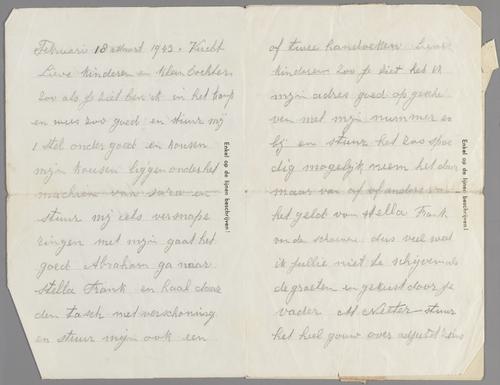 Februari 18 1943. Vucht
Lieve kinderen en klein dochter
zoo als je ziet ben ik in het kamp
en wees zoo goed en stuur mij
1 stel onder goed en kousen
mijn kousen liggen onder het
machien van sara en
stuur mij iets versnape
ringen met mijn gaat het
goed Abraham ga naar
Stella Frank en haal daar
den tasch met verschoning
en stuur mijn ook een
Enkel op de lijnen beschrijven!
of twee handoeken Lieve
kinderen zoo je ziet het is
mijn adres goed op geschre
ven met mijn nummer er
bij en stuur het zoo spoe
dig mogelijk neem het daar
maar van af of anders van
het geld van Stella Frank
om de schoenen dus veel wat
ik jullie niet te schijven als
de groeten en gekust door je
vader M Netter stuur
het heel gouw over
Enkel op de lijnen beschrijven!